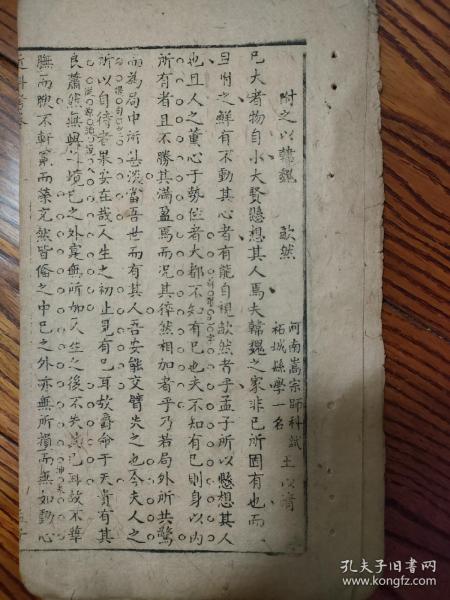 附之以韓魏 欿然
河南嵩宗師科試
柘城縣學一名 王
已大者物自小大賢懸想其人焉夫韓魏之家非已所固有也而
之鮮有不動其心者有能自視欿然者乎孟子所以懸想其人
也且人之薰心于勢位者大都不知有已也夫不知有已則身以內
所有者且不勝其滿盈焉而况其猝然相加者乎乃若局外所共驚
而為局中所甚淡當吾世而有其人吾安能交臂失之也今夫人之
所以自待者果安在哉人生之初止見有已耳故爵命于天貴有其
良蕭然無與 境已之外寔無所加人生之後不失為已耳故不華
膴而腴不軒冕而榮充然皆脩之中已之外亦無所損而無如動心
孔夫子旧书网
www.kongfz.com